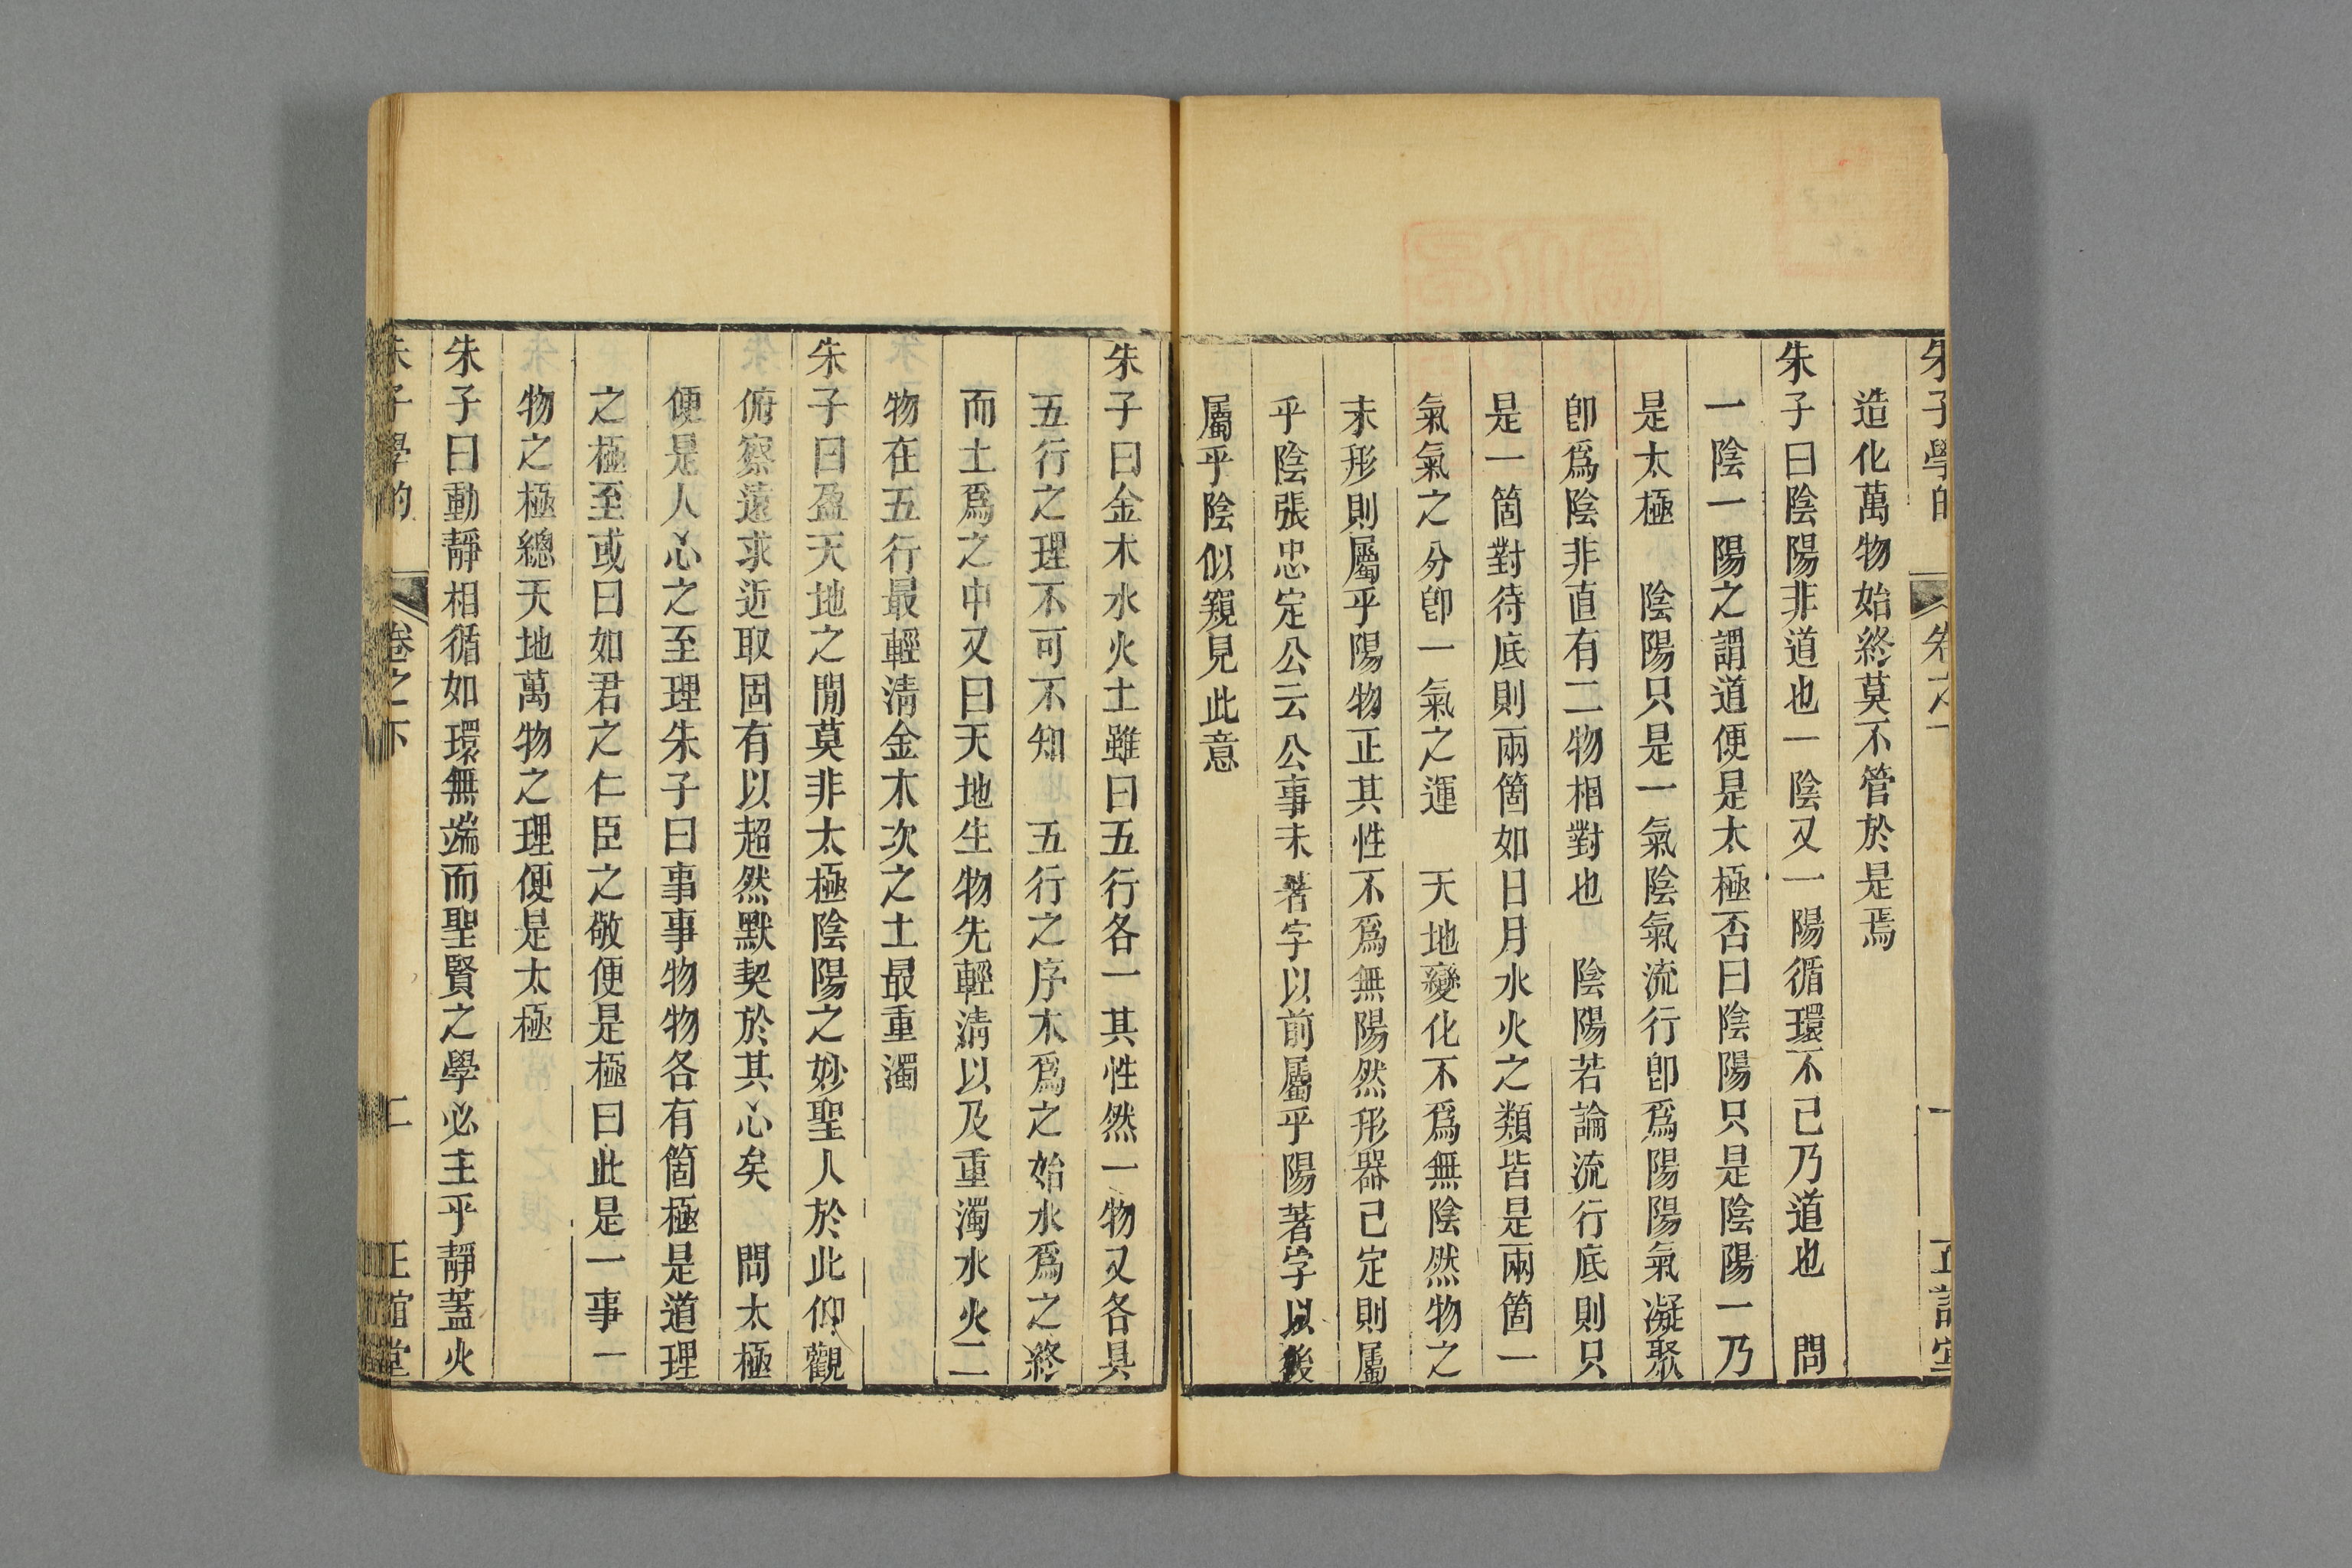 朱子學的 卷之下 一 正誼堂
造化萬物始終莫不管於是焉
朱子曰陰陽非道也一陰又一陽循環不已乃道也 問
一陰一陽之謂道便是太極否曰陰陽只是陰陽一乃
是太極 陰陽只是一氣陰氣流行卽爲陽陽氣凝聚
卽爲陰非直有二物相對也 陰陽若論流行底則只
是一箇對待底則兩箇如日月水火之類皆是兩箇一
氣氣之分卽一氣之運 天地變化不爲無陰然物之
未形則屬乎陽物正其性不爲無陽然形器已定則屬
乎陰張忠定公云公事未著字以前屬乎陽著字以後
屬乎陰似窺見此意
朱子曰金木水火土雖曰五行各一其性然一物又各具
五行之理不可不知 五行之序木爲之始水爲之終
而土爲之中又曰天地生物先輕淸以及重濁水火二
物在五行最輕淸金木次之土最重濁
朱子曰盈天地之閒莫非太極陰陽之妙聖人於此仰觀
俯察遠求近取固有以超然默契於其心矣 問太極
便是人心之至理朱子曰事事物物各有箇極是道理
之極至或曰如君之仁臣之敬便是極曰此是一事一
物之極總天地萬物之理便是太極
朱子曰動靜相循如環無端而聖賢之學必主乎靜蓋火
朱子學的 卷之下 二 正誼堂